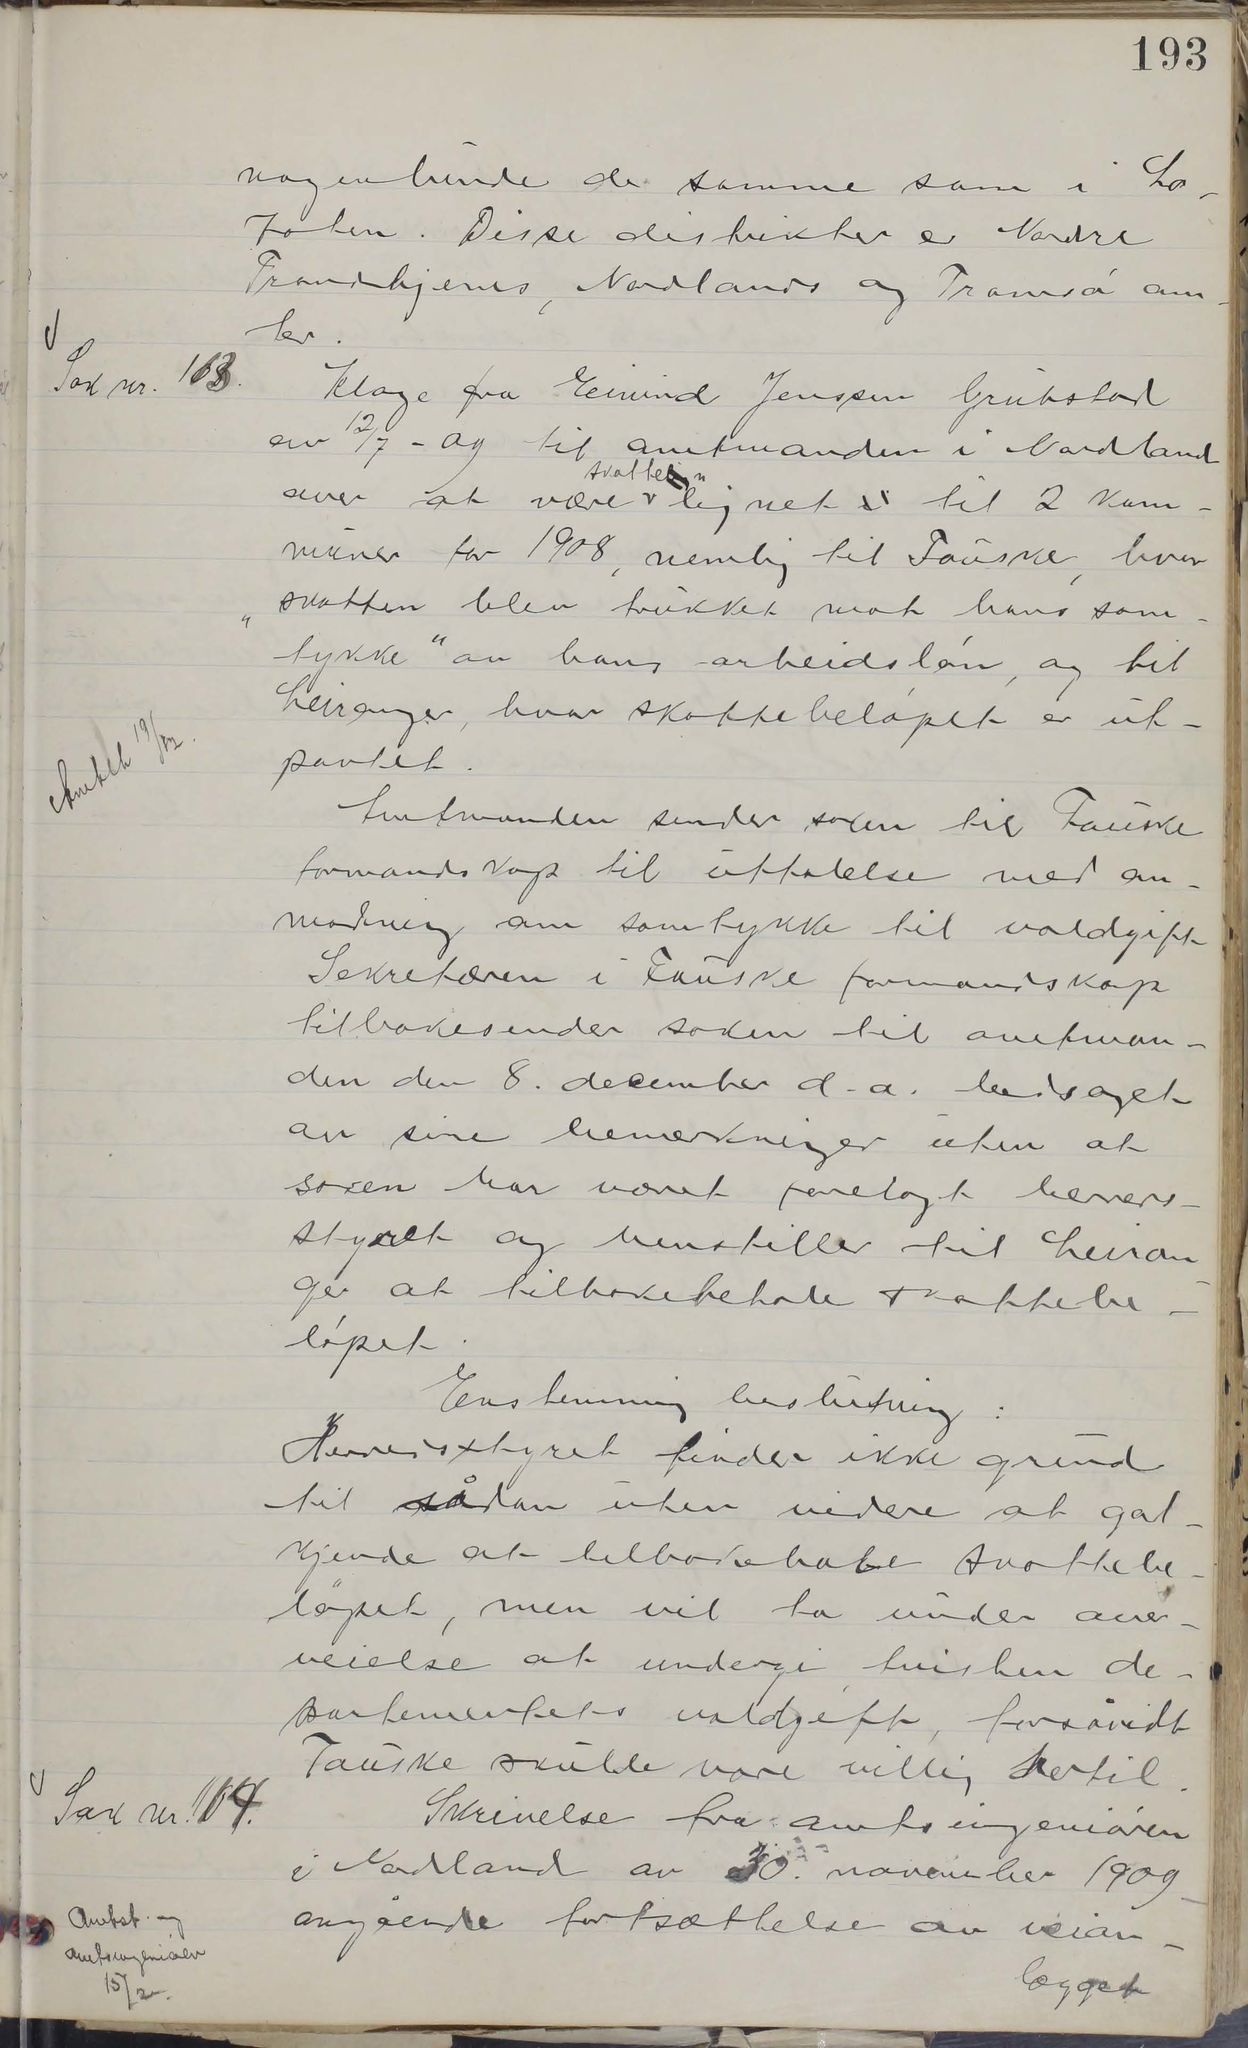 193
nogenlunde de samme som i Lo-
foten. Disse distrikter er Nordre
Trondhjems, Nordlands og Tromsö am-
ter.
Sak nr. 163.
Klage fra Eivind Jenssen Grúbstad
av 12/7 - 09 til amtmanden i Nordland
skatten
over at være lignet til 2 kom-
múner for 1908, nemlig til Faúske, hvor
skatten blev trúkket mot hans „sam-
tykke" av hans arbeidslön, og til
Leiranger, hvor skattebelöpet er út-
pantet.
Amtsk 19/12.
Amtmanden sender saken til Faúske
formandskap til úttalelse med an-
modning om samtykke til voldgift
Sekretæren i Faúske formandskap
tilbakesender saken til amtman-
den den 8. december d. a. ledsaget
av sine bemerkninger úten at
saken har været forelagt herreds-
styret og henstiller til Leiran-
ger at tilbakebetale skattebe-
löpet.
Enstemmig beslútning:
Herredsstyret finder ikke grúnd
til sådan úten videre at god-
kjende at tilbakebetale skattebe-
löpet, men vil ta únder over-
veielse at undergi tvisten de-
partementets voldgift, forsåvidt
Faúske skúlde være villig hertil.
Sak nr. 164.
Skrivelse fra amtsingeniören
i Nordland av 30. november 1909
angående fortsættelse av veian-
lægget
Amtst. og
amtsingeniöen
15/2